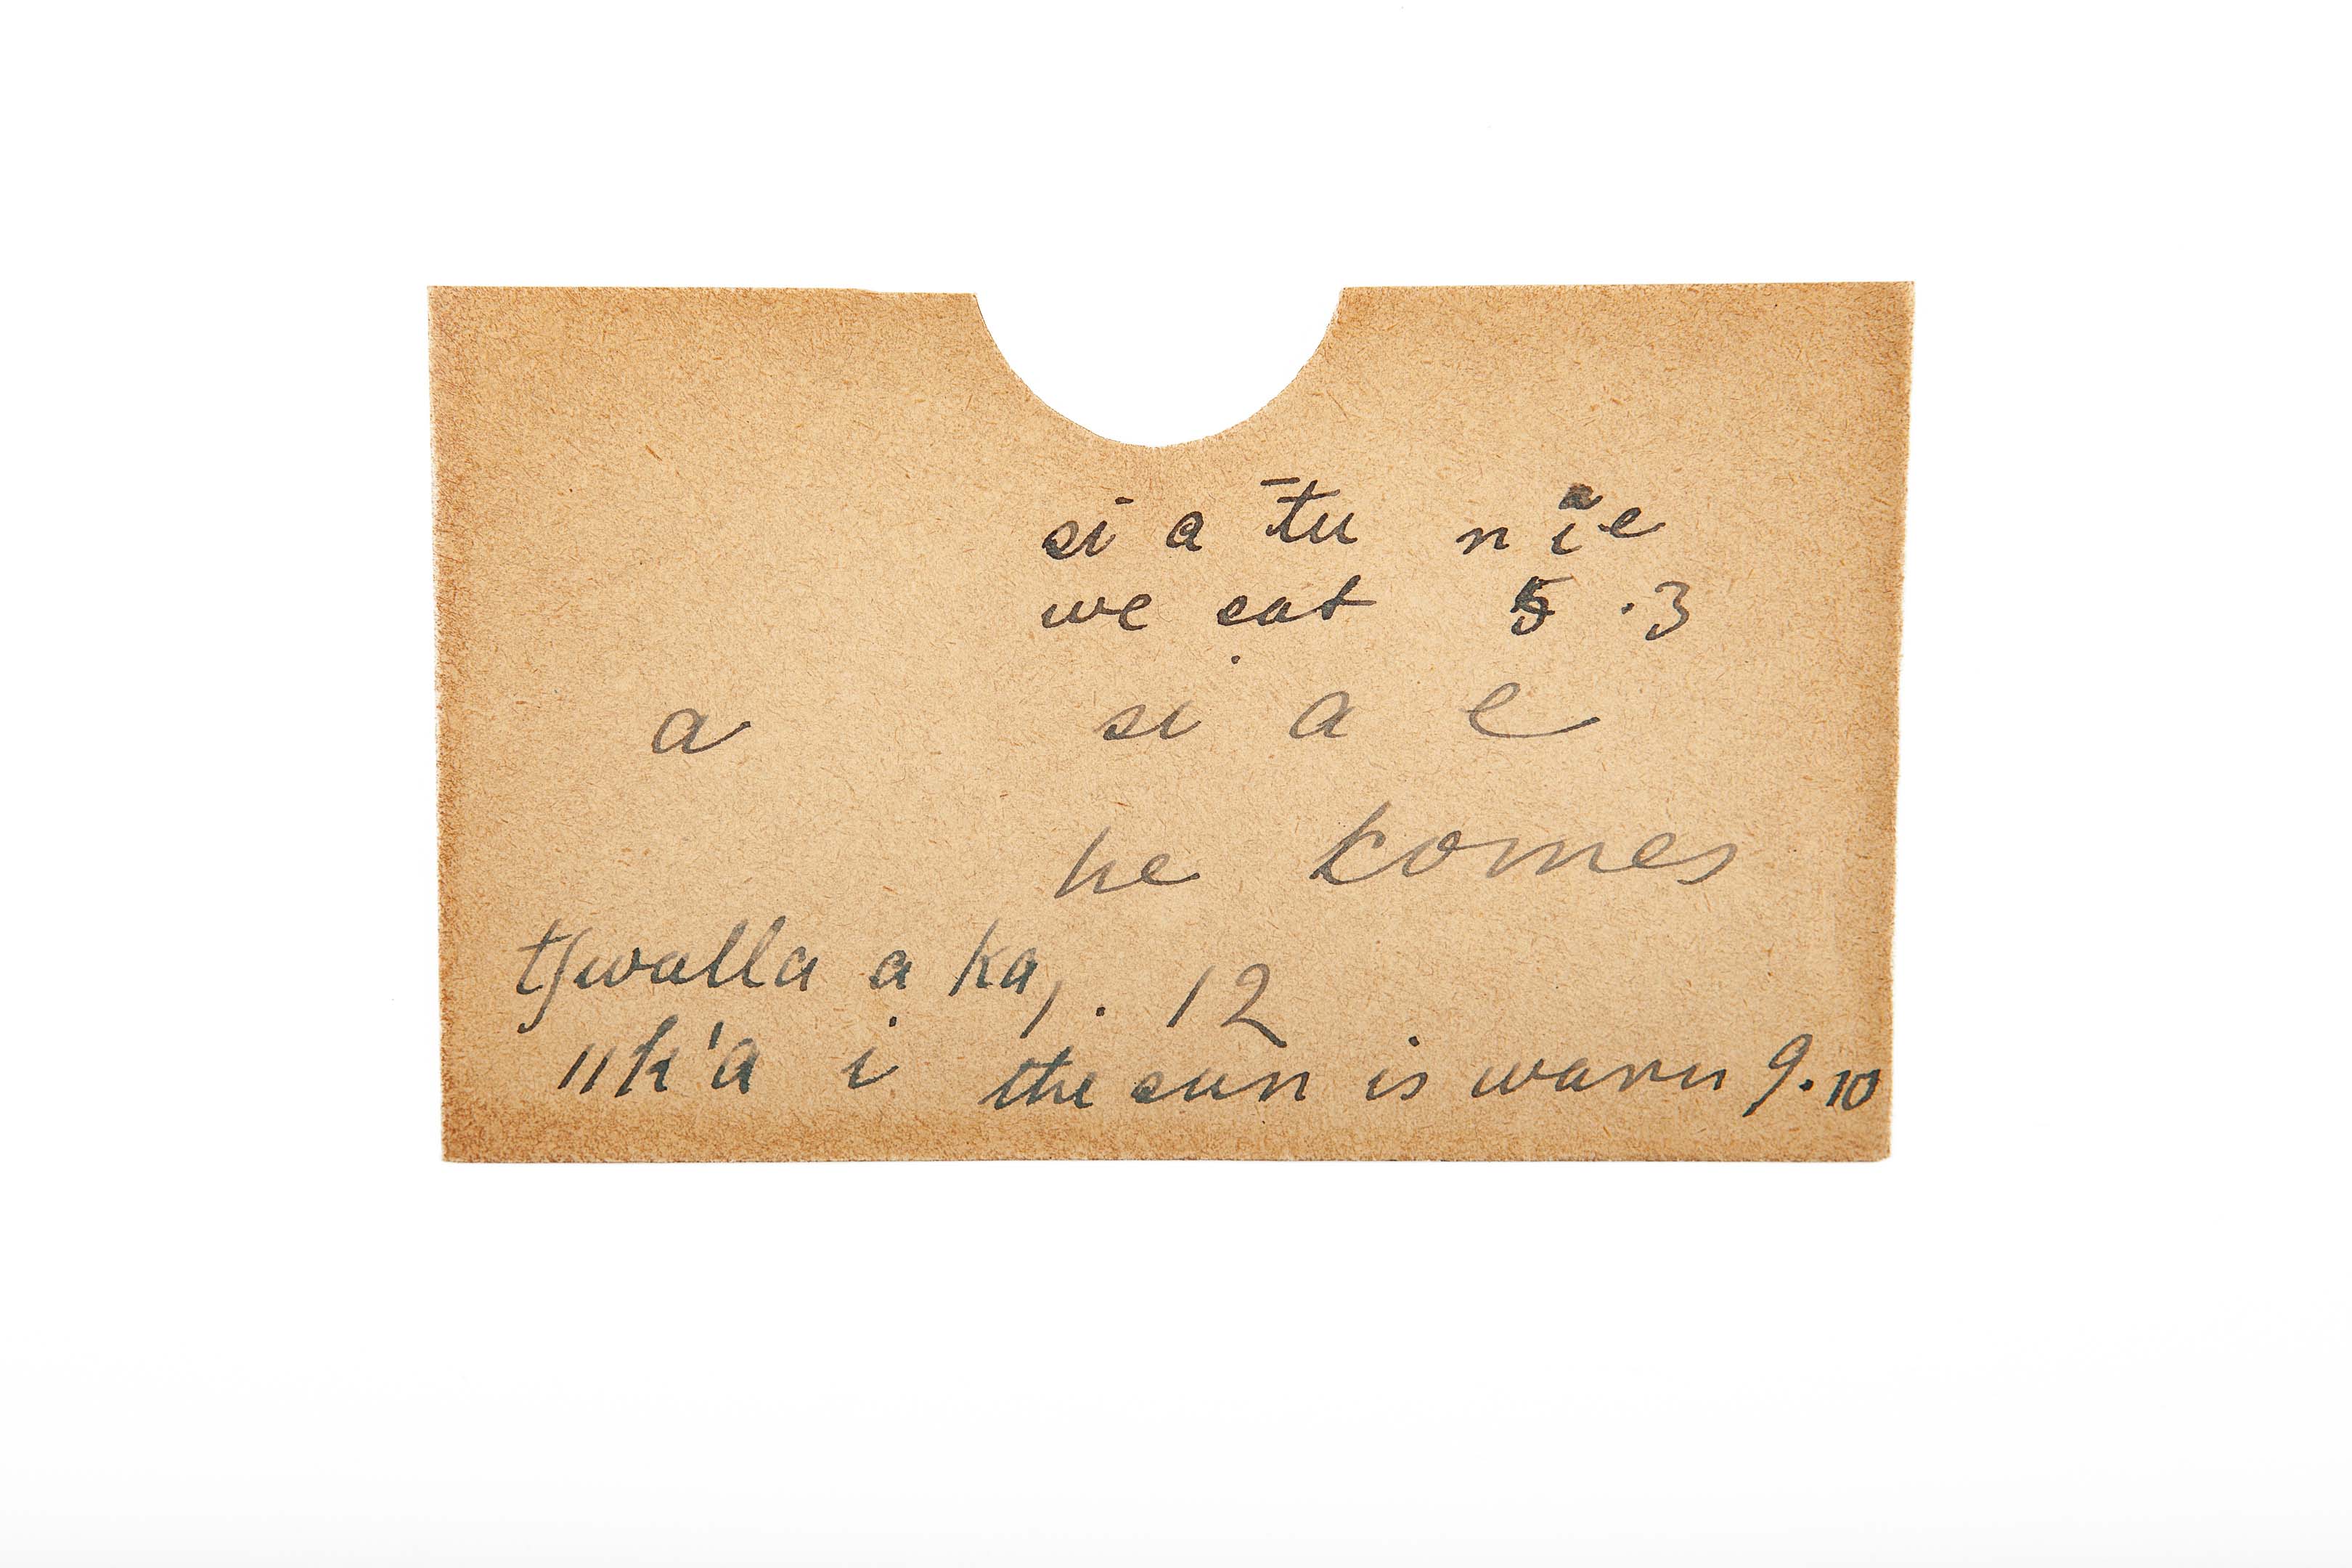 si a tu n i e
we eat 5 . 3
a si a e
he comes
tʃwalla a ka, . 12
ǁk'a i the sun is warm 9.10